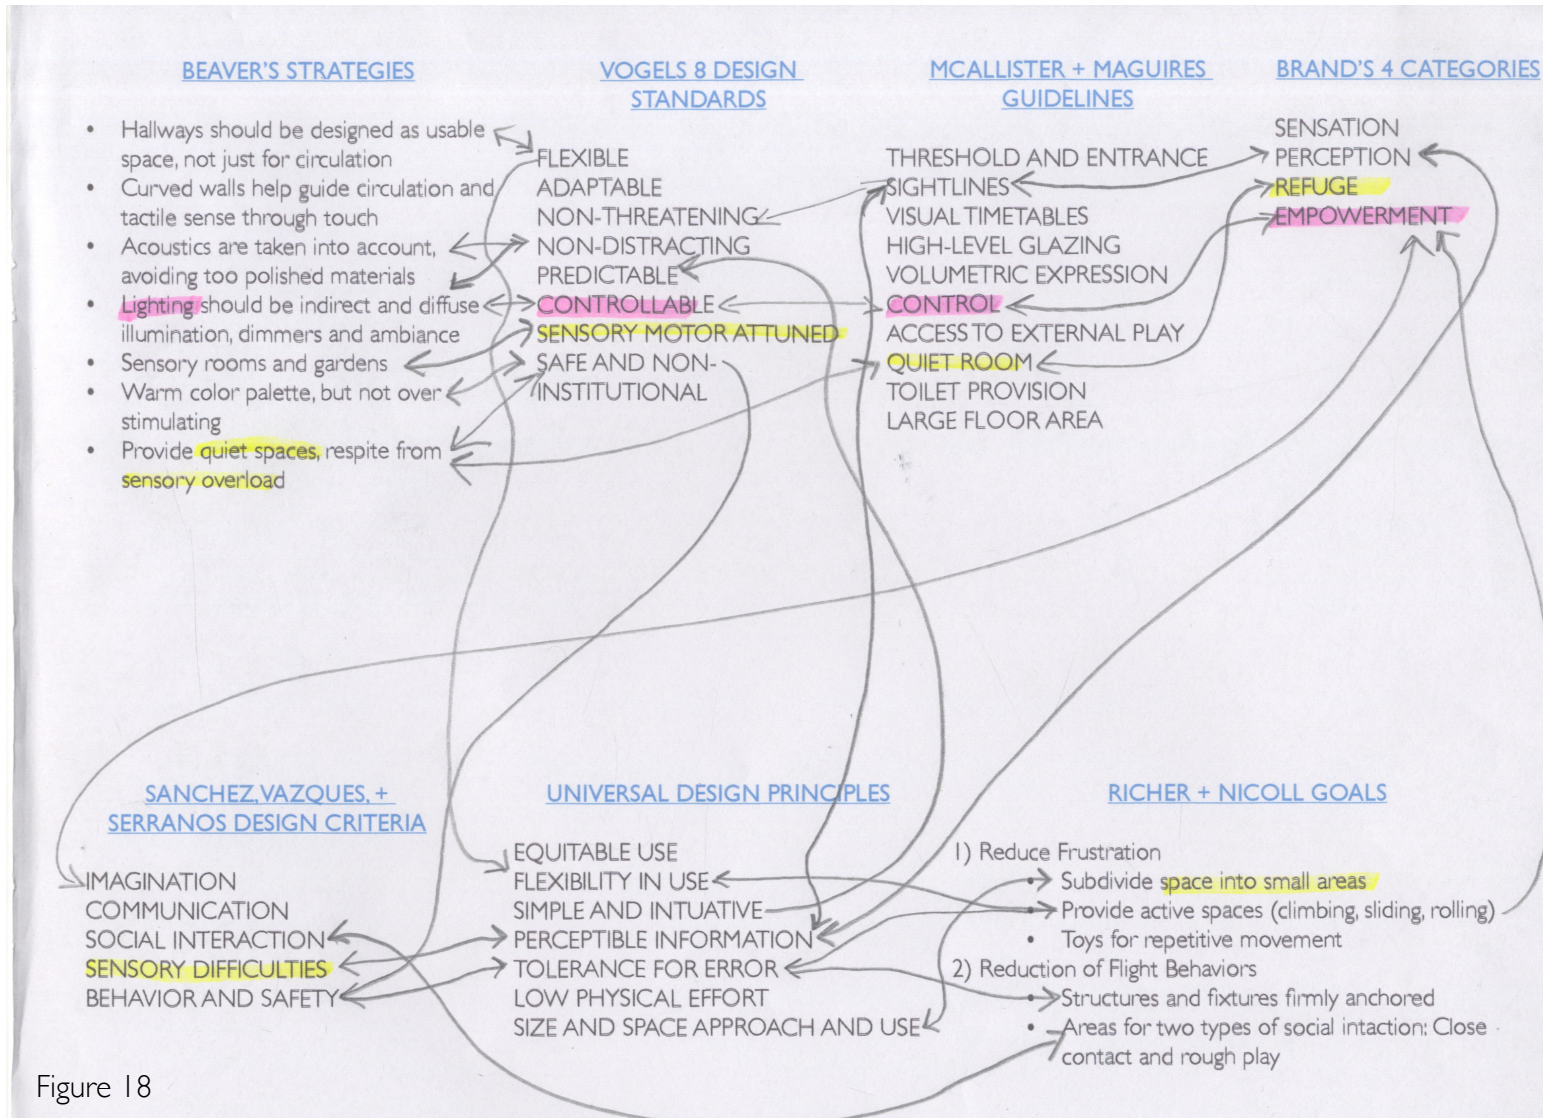 BEAVER'S STRATEGIES
• Hallways should be designed as usable
space, not just for circulation
• Curved walls help guide circulation and
tactile sense through touch
• Acoustics are taken into account,
avoiding too polished materials
• Lighting should be indirect and diffuse
illumination, dimmers and ambiance
• Sensory rooms and gardens
• Warm color palette, but not over
stimulating
• Provide quiet spaces, respite from
sensory overload
VOGELS 8 DESIGN
STANDARDS
FLEXIBLE
ADAPTABLE
NON-THREATENING
NON-DISTRACTING
PREDICTABLE
CONTROLLABLE
SENSORY MOTOR ATTUNED
SAFE AND NON-
INSTITUTIONAL
MCALLISTER + MAGUIRES
GUIDELINES
THRESHOLD AND ENTRANCE
SIGHTLINES
VISUAL TIMETABLES
HIGH-LEVEL GLAZING
VOLUMETRIC EXPRESSION
CONTROL
ACCESS TO EXTERNAL PLAY
QUIET ROOM
TOILET PROVISION
LARGE FLOOR AREA
BRAND'S 4 CATEGORIES
SENSATION
PERCEPTION
REFUGE
EMPOWERMENT
SANCHEZ, VAZQUES, +
SERRANOS DESIGN CRITERIA
IMAGINATION
COMMUNICATION
SOCIAL INTERACTION
SENSORY DIFFICULTIES
BEHAVIOR AND SAFETY
UNIVERSAL DESIGN PRINCIPLES
EQUITABLE USE
FLEXIBILITY IN USE
SIMPLE AND INTUATIVE
PERCEPTIBLE INFORMATION
TOLERANCE FOR ERROR
LOW PHYSICAL EFFORT
SIZE AND SPACE APPROACH AND USE
RICHER + NICOLL GOALS
1) Reduce Frustration
• Subdivide space into small areas
• Provide active spaces (climbing, sliding, rolling)
• Toys for repetitive movement
2) Reduction of Flight Behaviors
• Structures and fixtures firmly anchored
• Areas for two types of social intaction: Close
contact and rough play
Figure 18